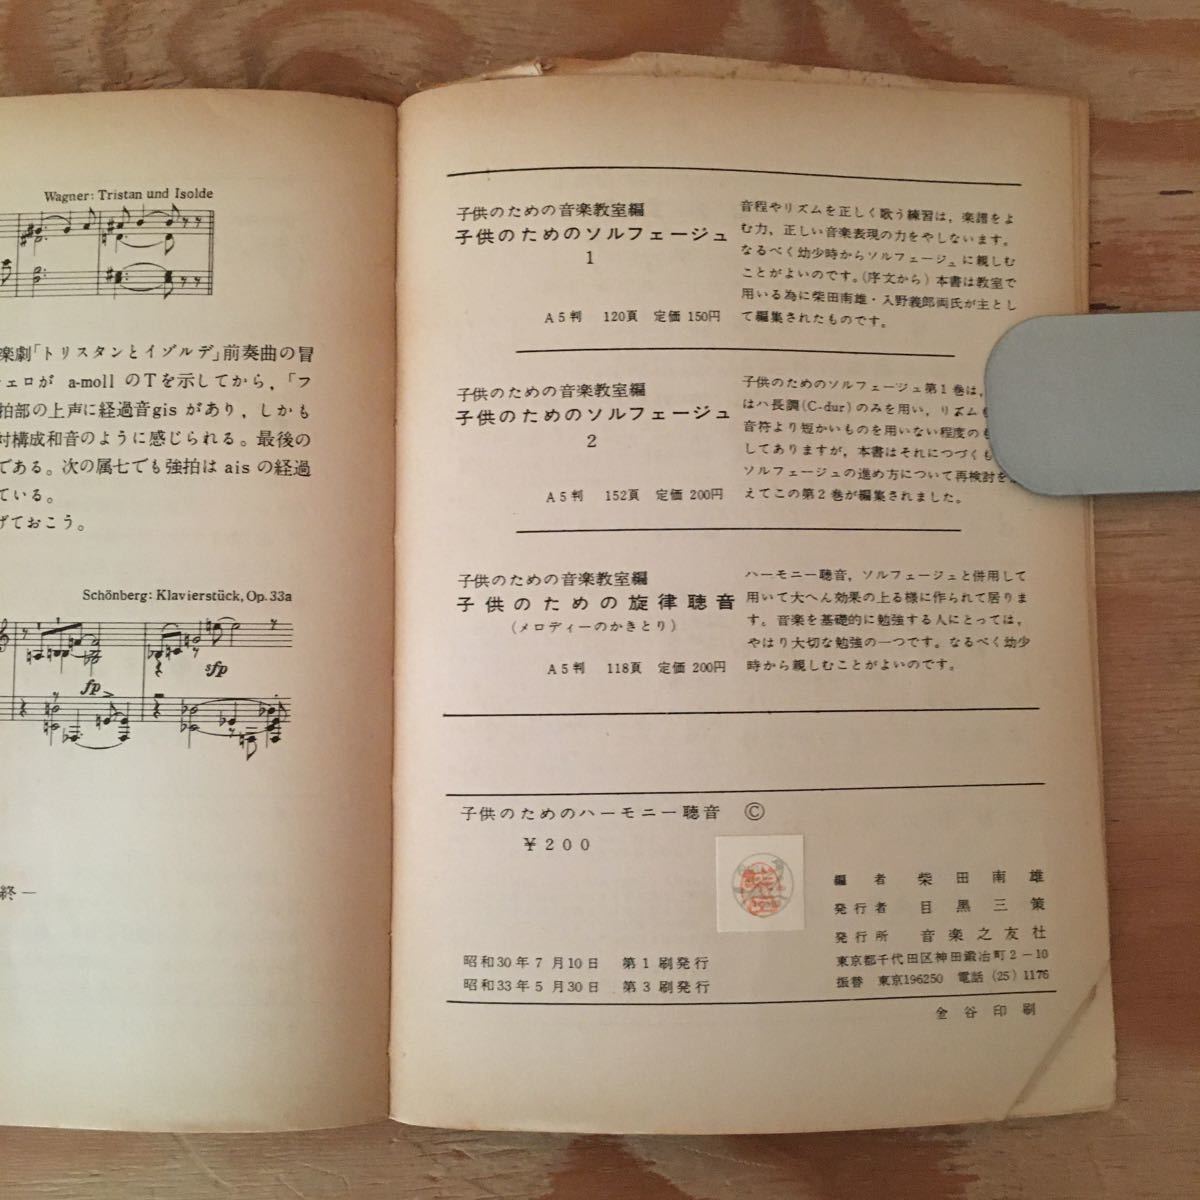 Wagner: Tristan und Isolde
楽劇「トリスタンとイゾルデ」前奏曲の冒
チェロが a-moll のTを示してから,「フ
拍部の上声に経過音gis があり,しかも
対構成和音のように感じられる。最後の
である。次の属七でも強拍は ais の経過
ている。
げておこう。
Schönberg: Klavierstück, Op. 33a
sfp
fp
終 —
子供のための音楽教室編
子供のためのソルフェージュ
1
A5判 120頁 定価 150円
音程やリズムを正しく歌う練習は,楽譜をよ
む力,正しい音楽表現の力をやしないます。
なるべく幼少時からソルフェージュに親しむ
ことがよいのです。(序文から)本書は教室で
用いる為に柴田南雄・入野義郎両氏が主とし
て編集されたものです。
子供のための音楽教室編
子供のためのソルフェージュ
2
A5判 152頁 定価 200円
子供のためのソルフェージュ第1巻は,
はハ長調(C-dur)のみを用い,リズムも
音符より短かいものを用いない程度のも
してありますが,本書はそれにつづくも
ソルフェージュの進め方について再検討を
えてこの第2巻が編集されました。
子供のための音楽教室編
子供のための旋律聴音
(メロディーのかきとり)
A5判 118頁 定価 200円
ハーモニー聴音,ソルフェージュと併用して
用いて大へん効果の上る様に作られて居りま
す。音楽を基礎的に勉強する人にとっては,
やはり大切な勉強の一つです。なるべく幼少
時から親しむことがよいのです。
子供のためのハーモニー聴音 ©
¥200
編者 柴田南雄
発行者 目黒三策
発行所 音楽之友社
東京都千代田区神田鍛冶町2-10
振替 東京196250 電話(25)1176
昭和30年7月10日 第1刷発行
昭和33年5月30日 第3刷発行
金谷印刷